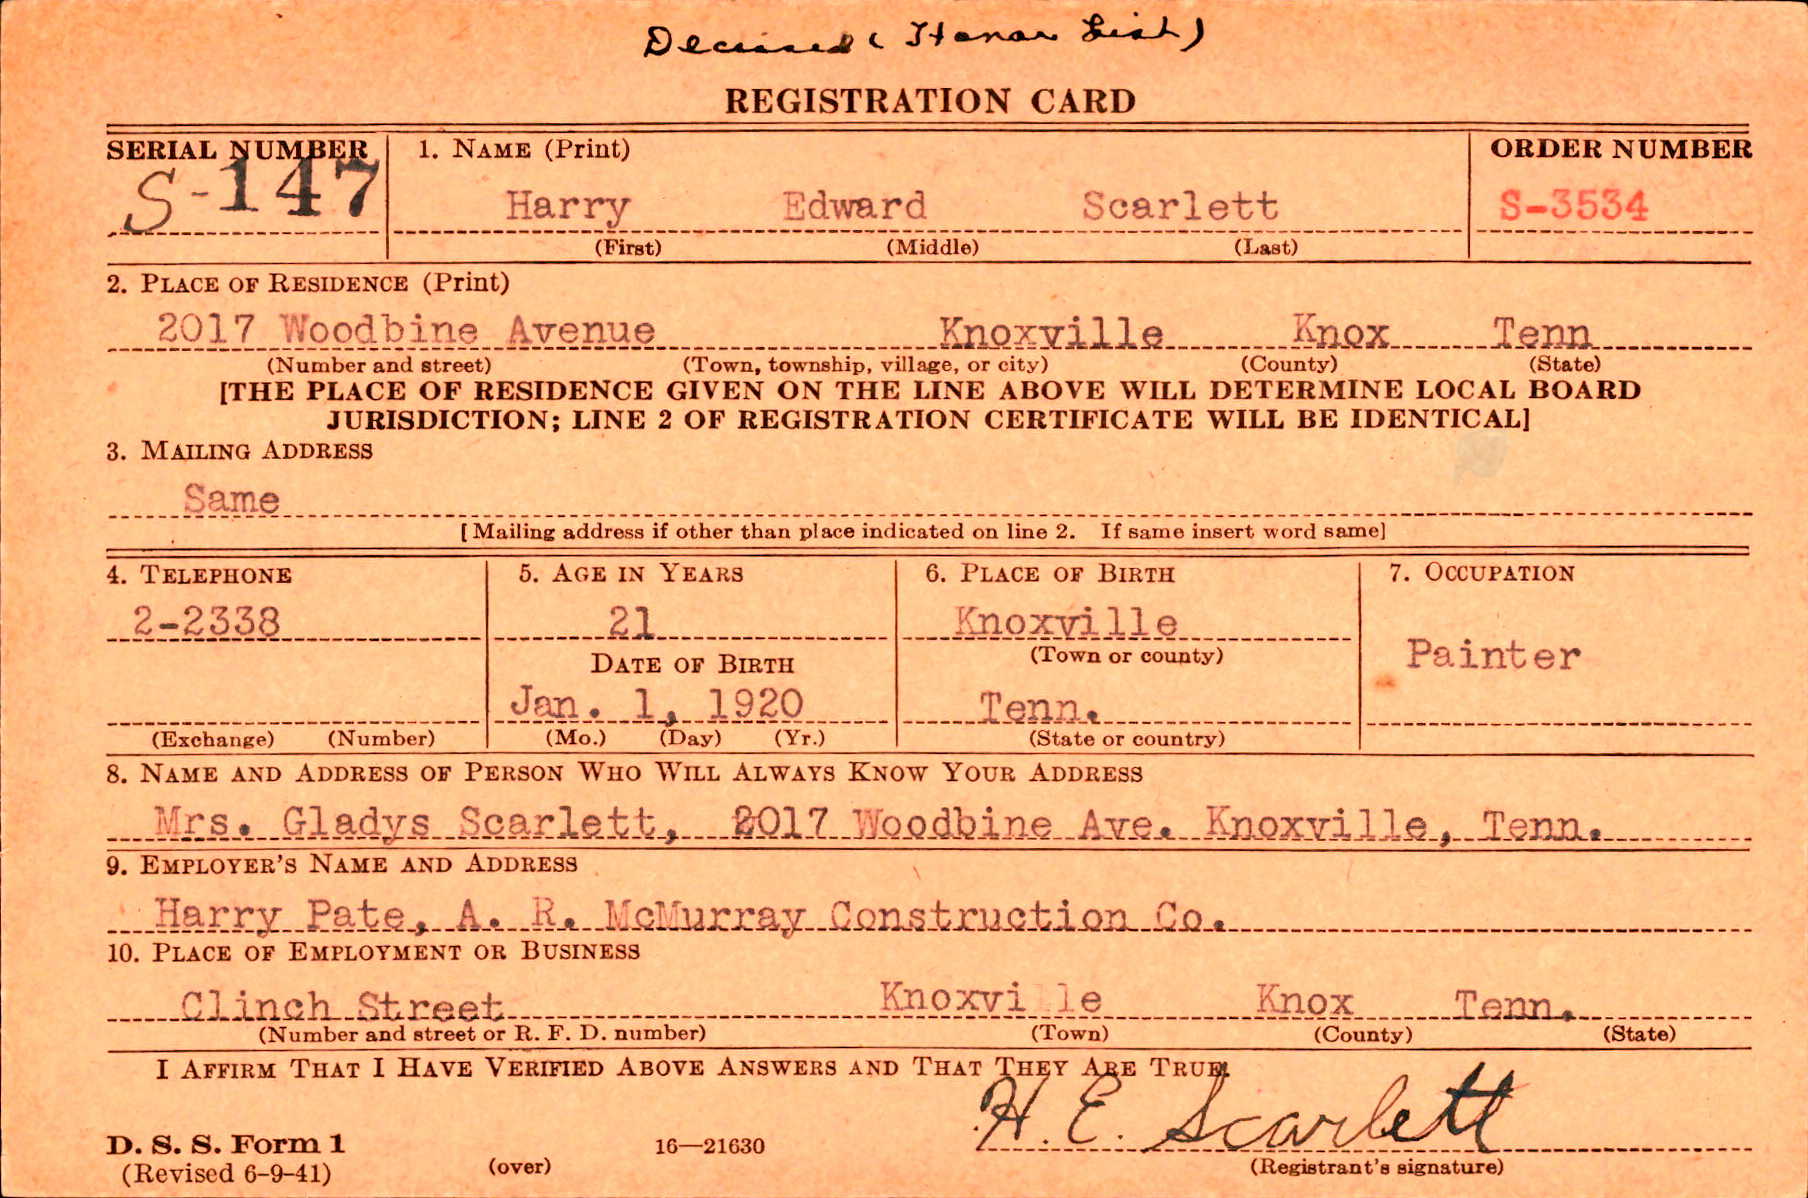 Deceased (Honor List)
REGISTRATION CARD
SERIAL NUMBER 1. NAME (Print) ORDER NUMBER
S-147 Harry Edward Scarlett S-3534
(First) (Middle) (Last)
2. PLACE OF RESIDENCE (Print)
2017 Woodbine Avenue Knoxville Knox Tenn
(Number and street) (Town, township, village, or city) (County) (State)
[THE PLACE OF RESIDENCE GIVEN ON THE LINE ABOVE WILL DETERMINE LOCAL BOARD
JURISDICTION; LINE 2 OF REGISTRATION CERTIFICATE WILL BE IDENTICAL]
3. MAILING ADDRESS
Same
[Mailing address if other than place indicated on line 2. If same insert word same]
4. TELEPHONE 5. AGE IN YEARS 6. PLACE OF BIRTH 7. OCCUPATION
2-2338 21 Knoxville
DATE OF BIRTH (Town or county) Painter
Jan. 1, 1920 Tenn.
(Exchange) (Number) (Mo.) (Day) (Yr.) (State or country)
8. NAME AND ADDRESS OF PERSON WHO WILL ALWAYS KNOW YOUR ADDRESS
Mrs. Gladys Scarlett, 2017 Woodbine Ave. Knoxville, Tenn.
9. EMPLOYER'S NAME AND ADDRESS
Harry Pate, A. R. McMurray Construction Co.
10. PLACE OF EMPLOYMENT OR BUSINESS
Clinch Street Knoxville Knox Tenn.
(Number and street or R. F. D. number) (Town) (County) (State)
I AFFIRM THAT I HAVE VERIFIED ABOVE ANSWERS AND THAT THEY ARE TRUE.
H. E. Scarlett
D. S. S. Form 1 16—21630
(Revised 6-9-41) (over) (Registrant's signature)